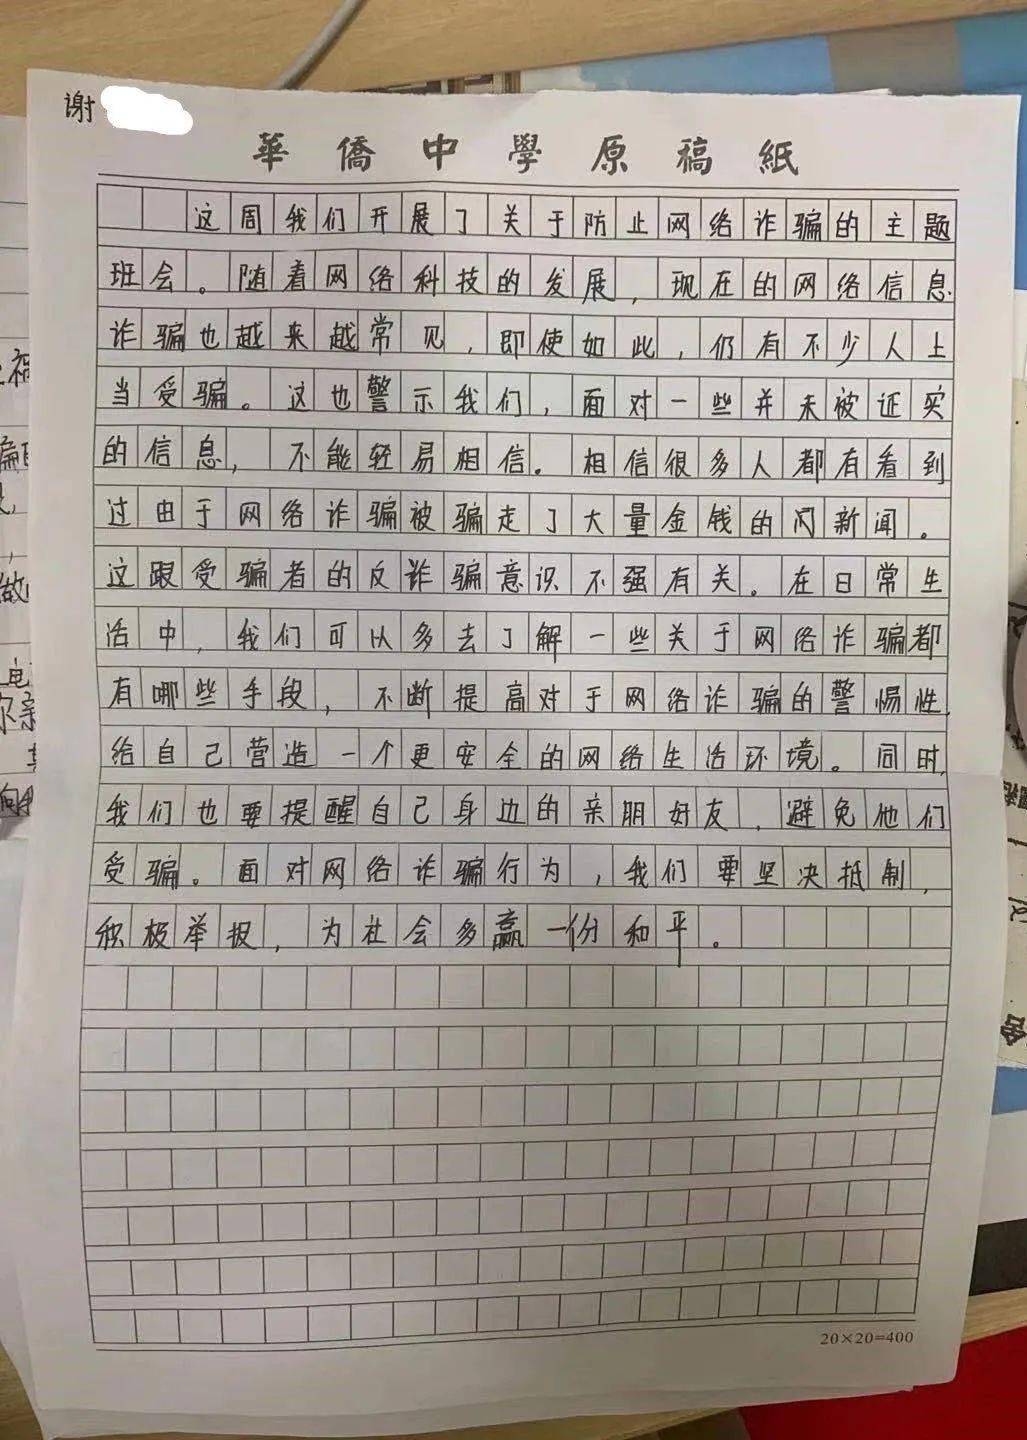 谢
華僑中學原稿紙
这周我们开展了关于防止网络诈骗的主题
班会。随着网络科技的发展，现在的网络信息
诈骗也越来越常见，即使如此，仍有不少人上
当受骗。这也警示我们，面对一些并未被证实
的信息，不能轻易相信。相信很多人都有看到
过由于网络诈骗被骗走了大量金钱的闷新闻。
这跟受骗者的反诈骗意识不强有关。在日常生
活中，我们可以多去了解一些关于网络诈骗都
有哪些手段，不断提高对于网络诈骗的警惕性，
给自己营造一个更安全的网络生活环境。同时，
我们也要提醒自己身边的亲朋好友，避免他们
受骗。面对网络诈骗行为，我们要坚决抵制，
积极举报，为社会多赢一份和平。
20×20=400